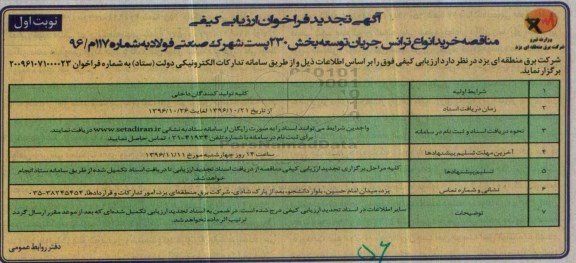 نوبت اول
آگهی تجدید فراخوان ارزیابی کیفی
وزارت نیرو
شرکت برق منطقه ای یزد
مناقصه خرید انواع ترانس جریان توسعه بخش ۲۳۰ پست شهرک صنعتی فولاد به شماره ۱۱۷/م/۹۶
شرکت برق منطقه ای یزد در نظر دارد ارزیابی کیفی فوق را بر اساس اطلاعات ذیل و از طریق سامانه تدارکات الکترونیکی دولت (ستاد) به شماره فراخوان ۲۰۰۹۶۱۰۷۱۰۰۰۰۲۳
برگزار نماید.
۱ شرایط اولیه کلیه تولید کنندگان داخلی
۲ زمان دریافت اسناد از تاریخ ۱۳۹۶/۱۰/۲۱ لغایت ۱۳۹۶/۱۰/۲۶
۳ نحوه دریافت اسناد و ثبت نام در سامانه واجدین شرایط می توانند اسناد را به صورت رایگان از سامانه ستاد به نشانی www.setadiran.ir دریافت نمایند.
برای ثبت نام در سامانه با شماره تلفن ۴۱۹۳۴-۰۲۱ تماس حاصل نمایید.
۴ آخرین مهلت تسلیم پیشنهادها ساعت ۱۴ روز چهارشنبه مورخ ۱۳۹۶/۱۱/۱۱
۵ تسلیم پیشنهادها کلیه مراحل برگزاری تجدید ارزیابی کیفی مناقصه از دریافت اسناد تجدید ارزیابی تا دریافت اسناد تکمیل شده از طریق سامانه ستاد انجام
خواهد شد.
۶ نشانی و شماره تماس یزد، میدان امام حسین، بلوار دانشجو، بعد از پارک شادی، شرکت برق منطقه‌ای یزد، امور تدارکات و قراردادها، ۳۸۲۴۵۴۵۴-۰۳۵
۷ توضیحات سایر اطلاعات در اسناد تجدید ارزیابی کیفی درج شده است. در ضمن به اسناد تجدید ارزیابی تکمیل شده‌ای که بعد از موعد مقرر ارسال گردد
ترتیب اثر داده نخواهد شد.
دفتر روابط عمومی